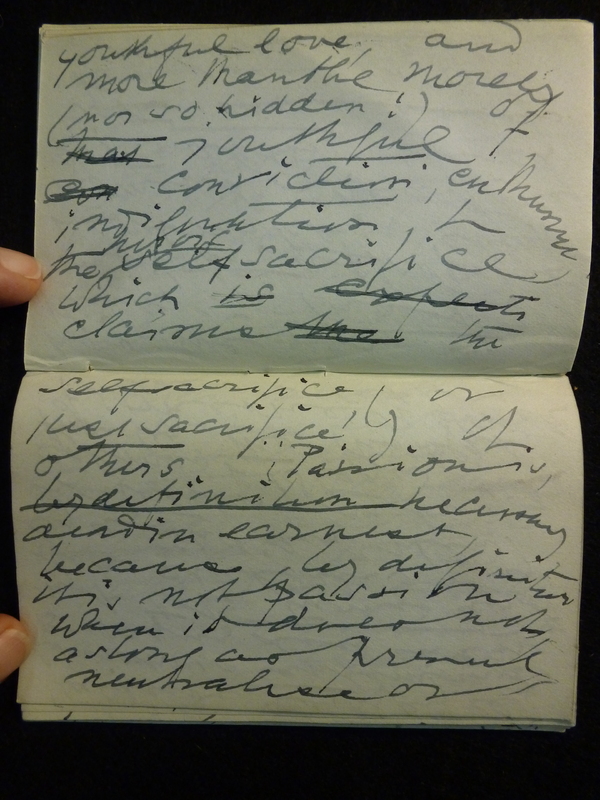 youthful love, and
more than the merely
(not so hidden!) of
that youthful
conviction, enthusiasm
indignation, to
the self sacrifice
which is expects
claims the the
selfsacrifice, or
just sacrifice!) of
others. Passion is,
by definition necessary
dead in earnest,
because by definition
it is not passion
when it does not,
as long as present
neutralise or